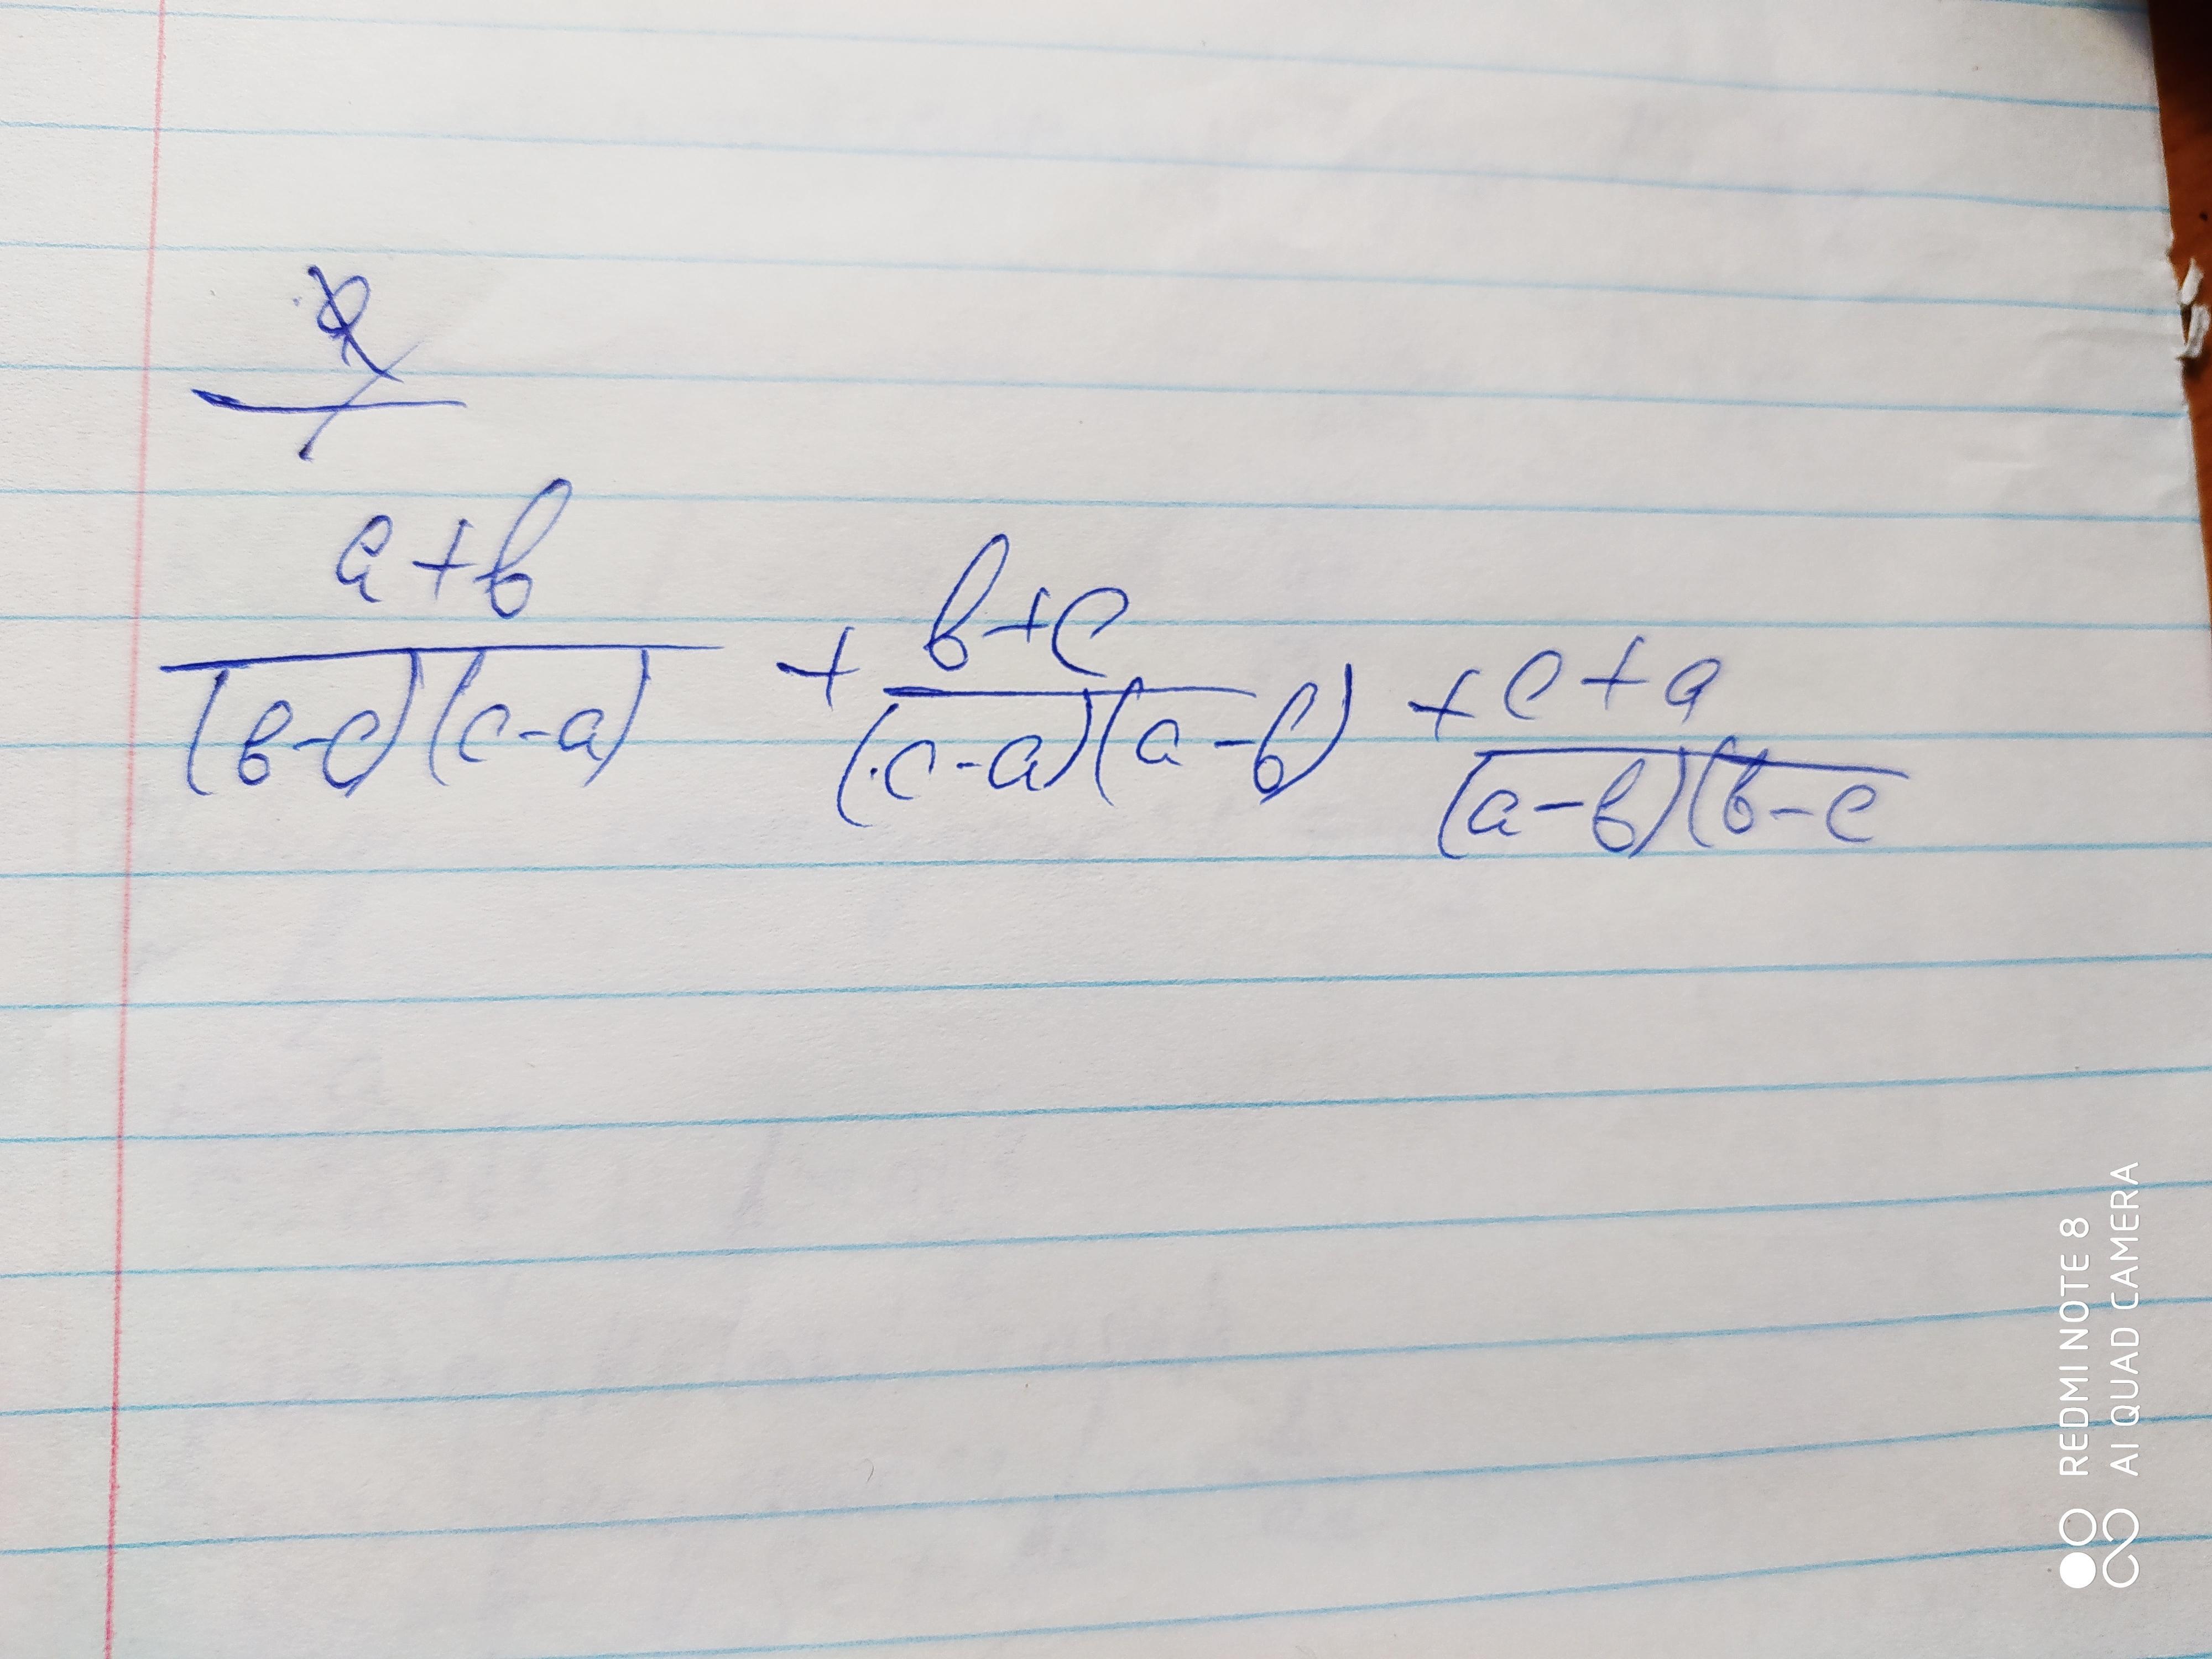 (a+b)/((b-c)(c-a)) + (b+c)/((c-a)(a-b)) + (c+a)/((a-b)(b-c
REDMI NOTE 8
AI QUAD CAMERA